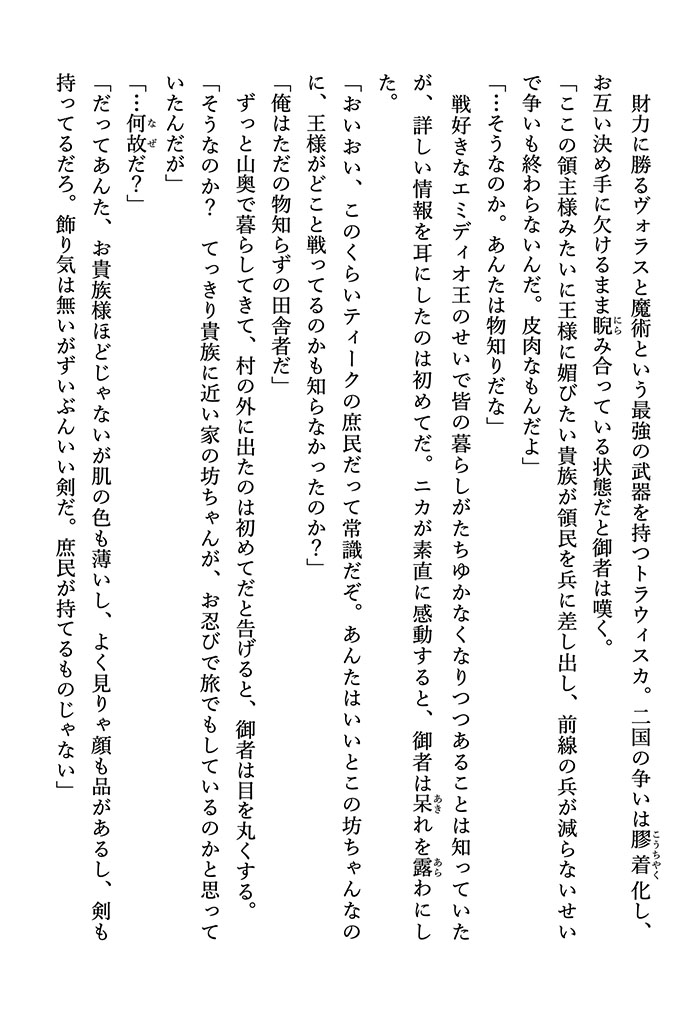 財力に勝るヴォラスと魔術という最強の武器を持つトラウィスカ。二国の争いは膠着化し、
お互い決め手に欠けるまま睨み合っている状態だと御者は嘆く。
「ここの領主様みたいに王様に媚びたい貴族が領民を兵に差し出し、前線の兵が減らないせい
で争いも終わらないんだ。皮肉なもんだよ」
「…そうなのか。あんたは物知りだな」
戦好きなエミディオ王のせいで皆の暮らしがたちゆかなくなりつつあることは知っていた
が、詳しい情報を耳にしたのは初めてだ。ニカが素直に感動すると、御者は呆れを露わにし
た。
「おいおい、このくらいティークの庶民だって常識だぞ。あんたはいいとこの坊ちゃんなの
に、王様がどこと戦ってるのかも知らなかったのか？」
「俺はただの物知らずの田舎者だ」
ずっと山奥で暮らしてきて、村の外に出たのは初めてだと告げると、御者は目を丸くする。
「そうなのか？　てっきり貴族に近い家の坊ちゃんが、お忍びで旅でもしているのかと思って
いたんだが」
「…何故だ？」
「だってあんた、お貴族様ほどじゃないが肌の色も薄いし、よく見りゃ顔も品があるし、剣も
持ってるだろ。飾り気は無いがずいぶんいい剣だ。庶民が持てるものじゃない」